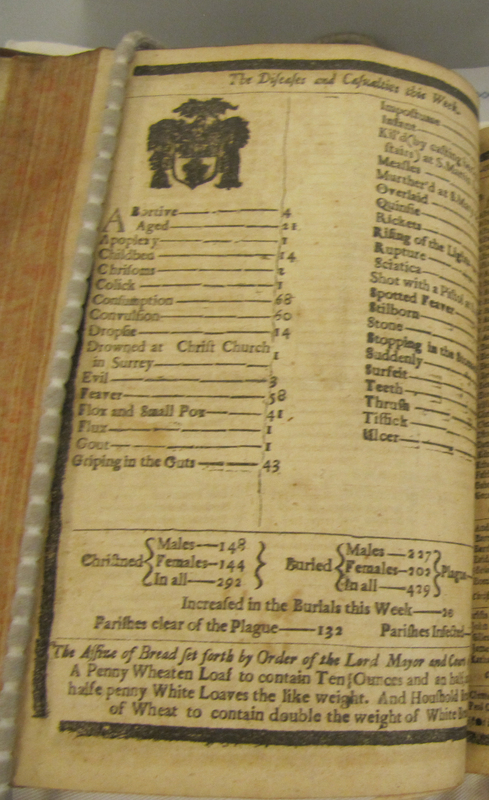 The Diſeaſes and Caſualties this Week.
ABortive 4
Aged 21
Apoplexy 1
Childbed 14
Chriſoms
Colick 1
Conſumption 68
Convulſion 60
Dropſie 14
Drowned at Chriſt Church
in Surrey 1
Evil 3
Feaver 58
Flox and Small Pox 41
Flux 1
Gout 1
Griping in the Guts 43
Impoſtume
Infant
Kill'd (by
ſtairs) at S.
Meaſles
Murther'd at S.
Overlaid
Quinſie
Rickets
Riſing of the Lights
Rupture
Sciatica
Shot with a Piſtol
Spotted Feaver
Stilborn
Stone
Stopping in the
Suddenly
Surfeit
Teeth
Thruſh
Tiſſick
Ulcer
Chriſtned { Males—148
Females—144
In all—292 }
Buried { Males—227
Females—202
In all—429 } Plague
Increaſed in the Burials this Week—20
Pariſhes clear of the Plague—132 Pariſhes Infected
The Aſſize of Bread ſet forth by Order of the Lord Mayor and Court
A Penny Wheaten Loaf to contain Ten Ounces and an half,
halfe penny White Loaves the like weight. And Houſhold
of Wheat to contain double the weight of White